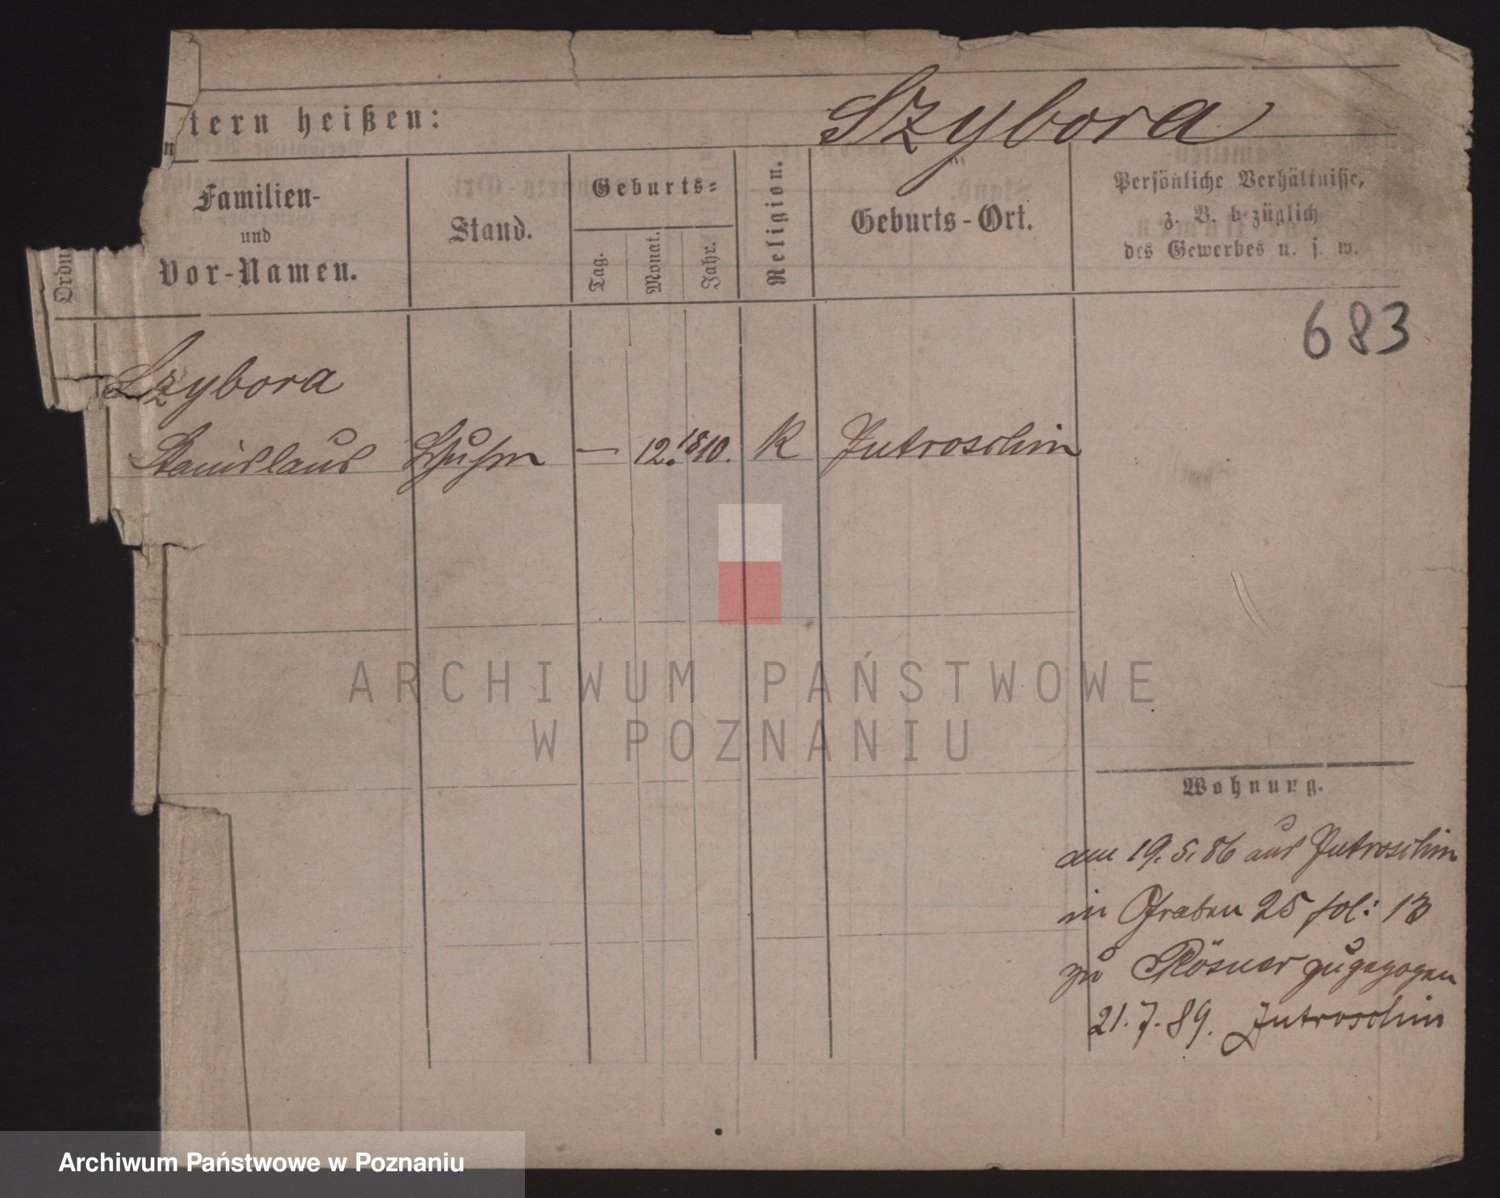 Szybora
tern heißen:
n
Ordn
Familien-
und
Vor-Namen.
Stand.
Geburts=
Tag.
Monat.
Jahr.
Religion.
Geburts-Ort.
Persönliche Verhältnisse,
z. B. bezüglich
des Gewerbes u. s. w.
683
Szybora
Stanislaus — 12. 1810. K Jutroschin
Wohnung.
am 19.5.86 aus Jutroschin
in Graben 25 fol: 13
zu Rösner zugezogen
21.7.89. Jutroschin
ARCHIWUM PAŃSTWOWE
W POZNANIU
Archiwum Państwowe w Poznaniu